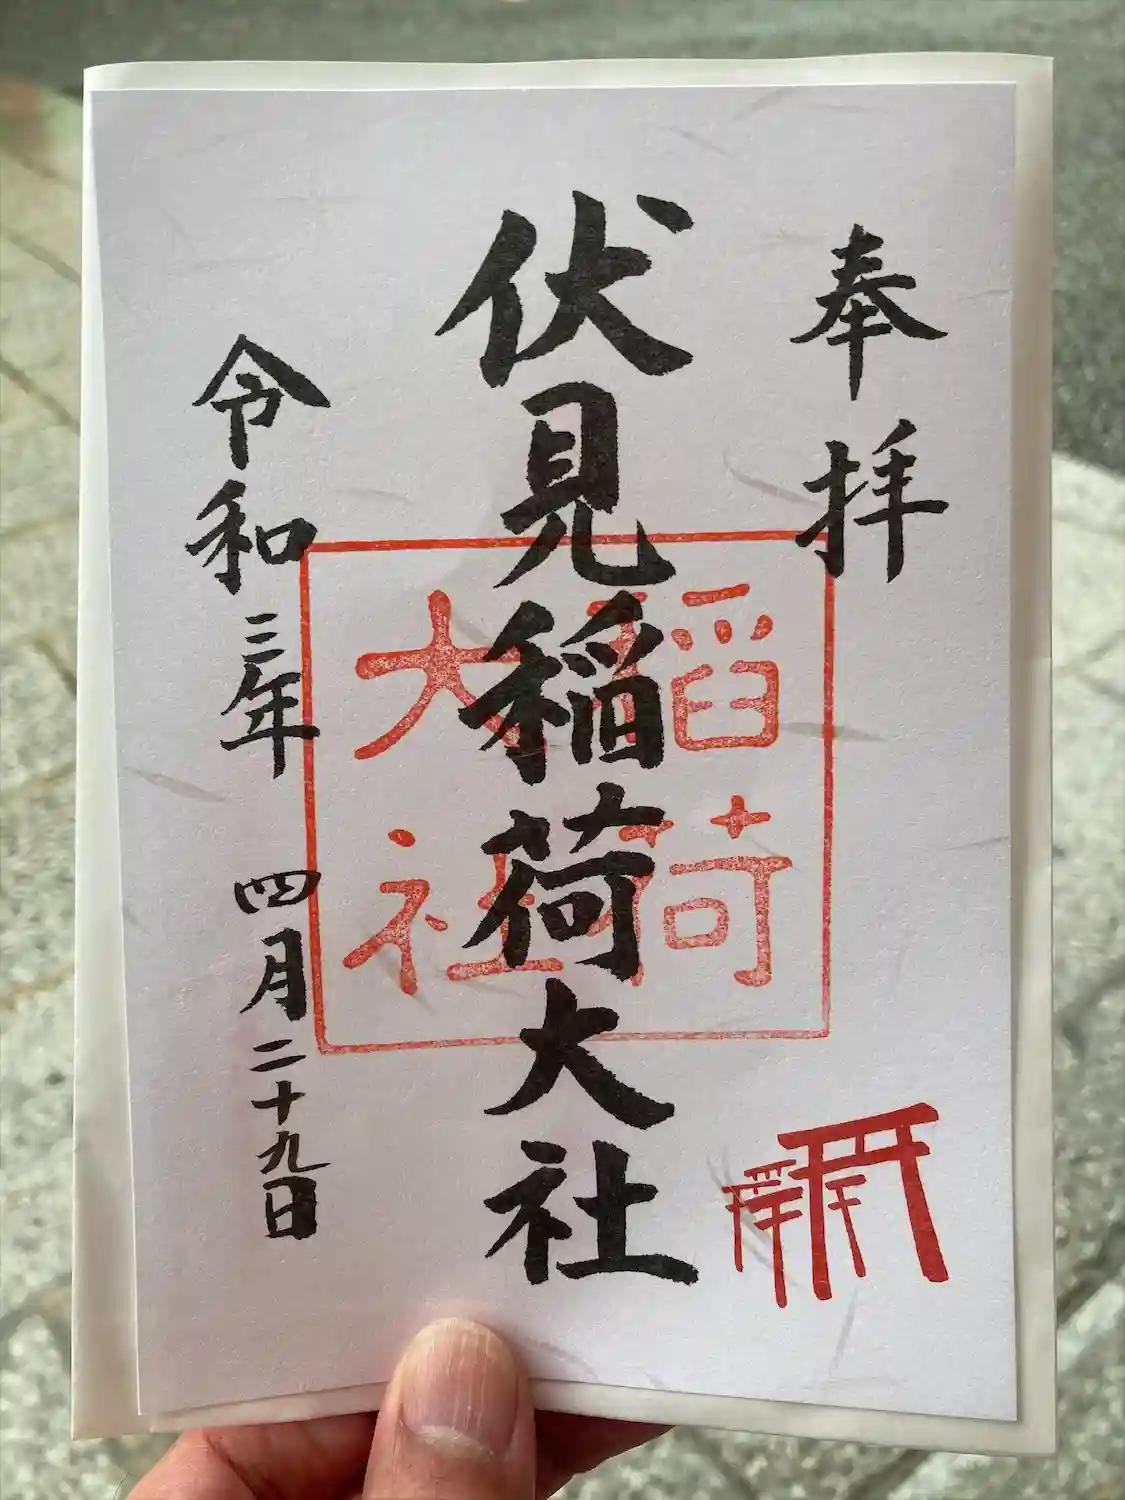 奉拝
伏見稲荷大社
稲荷
大社
令和三年 四月二十九日